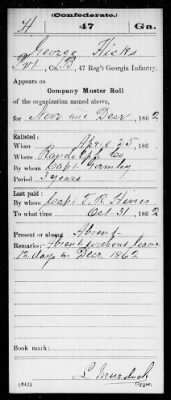 (Confederate.)
H 47 Ga.
George Hicks
Pvt, Co. B, 47 Reg't Georgia Infantry.
Appears on
Company Muster Roll
of the organization named above,
for Nov and Decr, 1862
Enlisted:
When Apr 25, 186
Where Randolph Co
By whom Capt Gamley
Period 3 years
Last paid:
By whom Capt T. R. Hines
To what time Oct 31, 1862
Present or absent Absent
Remarks: Absent without leave
12 days in Decr 1862
Book mark:
(642)
Copyist.